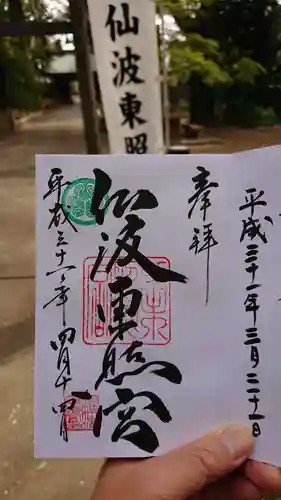 仙波東照
奉拝
仙波東照宮
平成三十一年四月十四日
平成三十一年三月二十一日